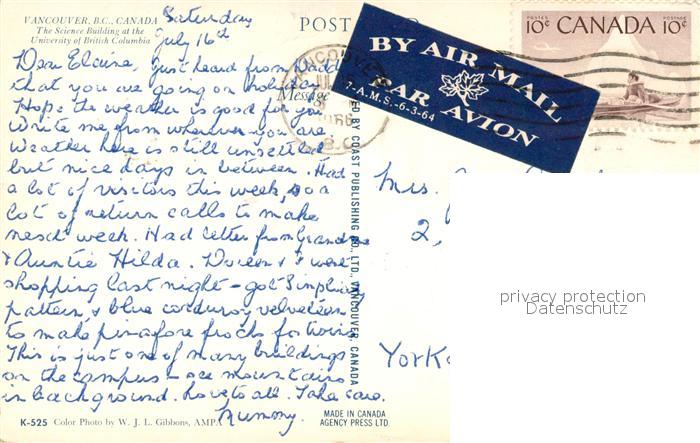 VANCOUVER, B.C., CANADA
The Science Building at the
University of British Columbia
Saturday
July 16th
POST
Dear Elaine, just heard from Dadd
that you are going on holiday.
Hope the weather is good for you
Write me from wherever you are.
Weather here is still unsettled
but nice days in between. Had
a lot of visitors this week, so a
lot of return calls to make
next week. Had letter from Grandma
& Auntie Hilda. Doreen & I went
shopping last night - got Simplicity
pattern, & blue corduroy velveteen
to make pinafore frocks for twins
This is just one of many buildings
on the campus - see mountains
in background. Love to all. Take care.
Mummy.
K-525 Color Photo by W. J. L. Gibbons, AMPA
Message
VANCOUVER
B.C.
BY AIR MAIL
PAR AVION
7-A.M.S.-6-3-64
POSTES POSTAGE
10¢ CANADA 10¢
BY COAST PUBLISHING CO., LTD., VANCOUVER, CANADA
MADE IN CANADA
AGENCY PRESS LTD.
Mrs.
2,
Yorks
privacy protection
Datenschutz